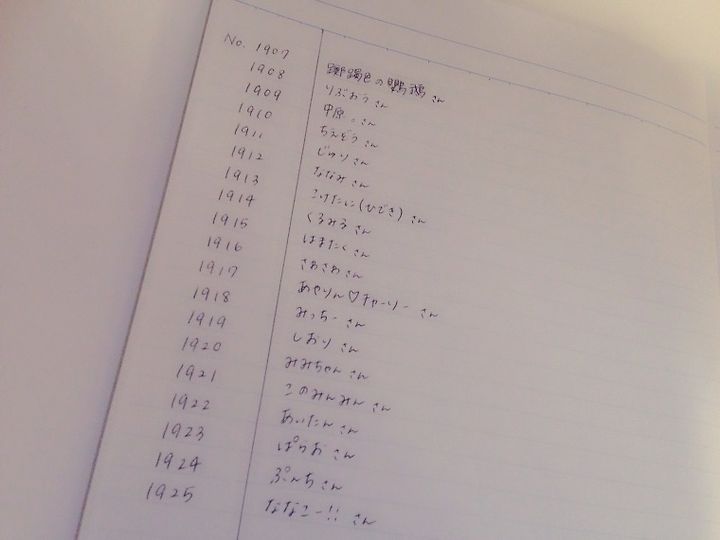 No. 1907 躑躅色の鸚鵡さん
1908 りぶおうさん
1909 中原。さん
1910 ちえぞうさん
1911 じゅりさん
1912 ななみさん
1913 こけたに(ひでき)さん
1914 くるみるさん
1915 はまたくさん
1916 さわさわさん
1917 あやりん♡チャーリーさん
1918 みっちーさん
1919 しおりさん
1920 みみちゃんさん
1921 このみんみんさん
1922 あいたんさん
1923 ぱつおさん
1924 ぷんちさん
1925 ななこー!!さん